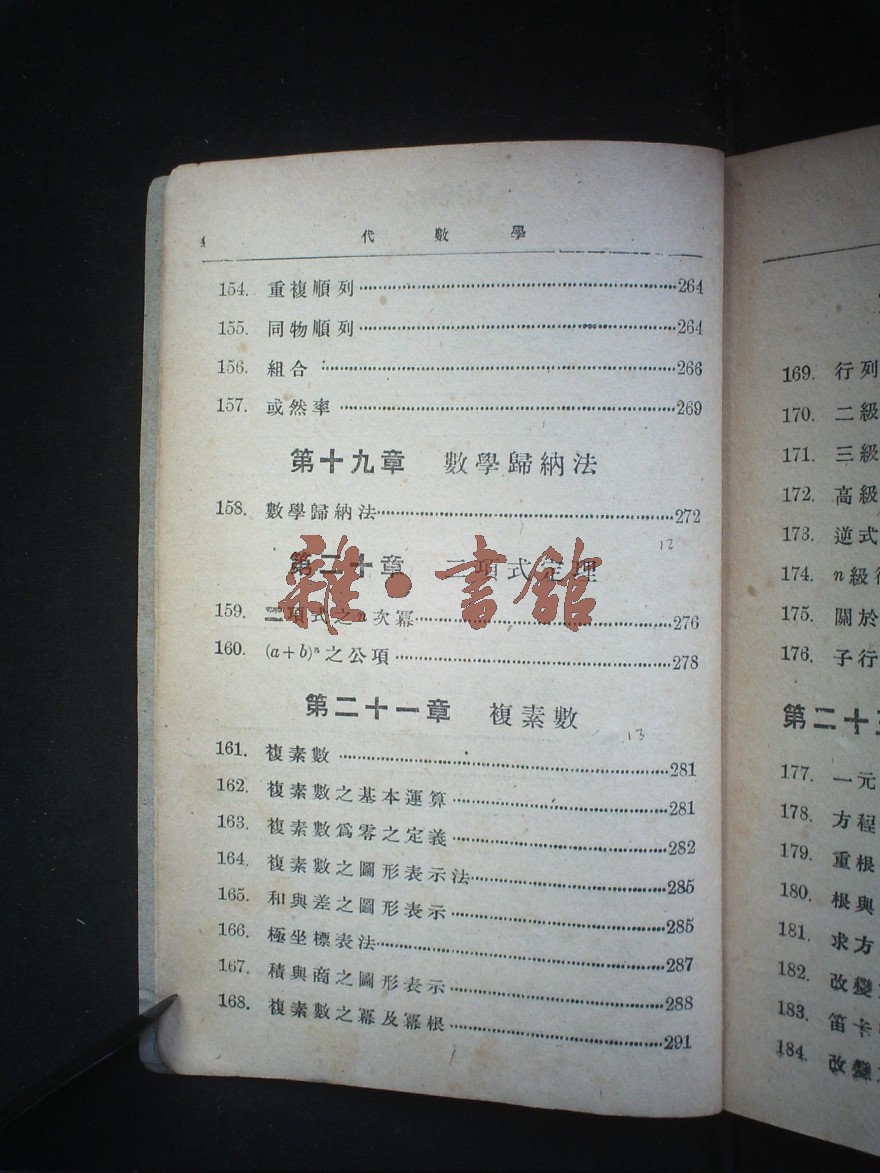 4 代數學
154. 重複順列 264
155. 同物順列 264
156. 組合 266
157. 或然率 269
第十九章 數學歸納法
158. 數學歸納法 272
12
第二十章 二項式定理
雜·書館
159. 二項式之n次冪 276
160. (a+b)ⁿ之公項 278
第二十一章 複素數
13
161. 複素數 281
162. 複素數之基本運算 281
163. 複素數爲零之定義 282
164. 複素數之圖形表示法 285
165. 和與差之圖形表示 285
166. 極坐標表法 287
167. 積與商之圖形表示 288
168. 複素數之冪及冪根 291
169. 行列
170. 二級
171. 三級
172. 高級
173. 逆式
174. n級行
175. 關於
176. 子行
第二十五
177. 一元
178. 方程
179. 重根
180. 根與
181. 求方
182. 改變
183. 笛卡
184. 改變